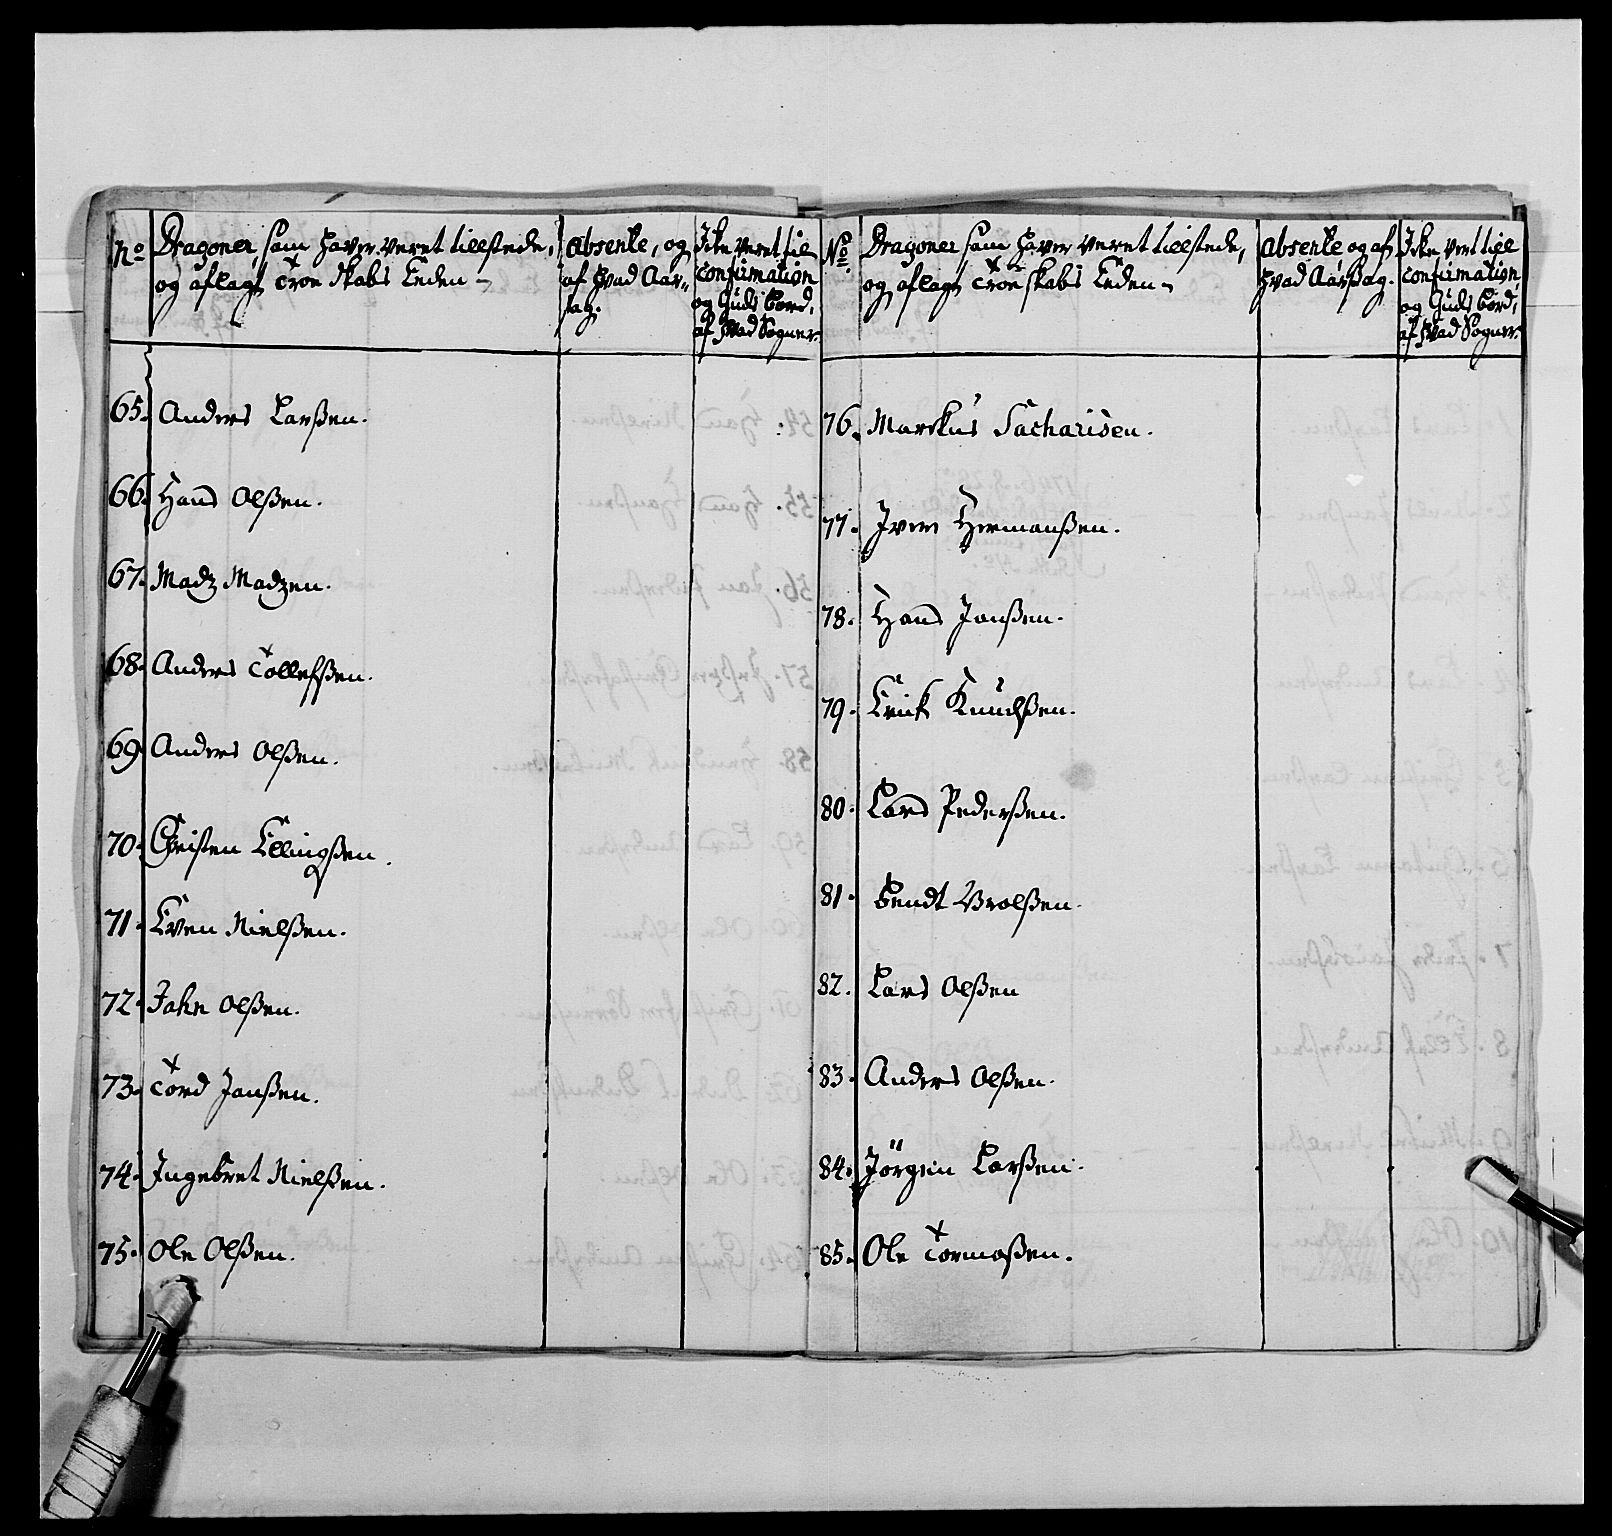 No
Dragoner, som haver veret tillstede,
og aflagt Troe skabs Eeden
absente, og
af hvad Aar-
sag.
Icke veret til
confirmation
og Guds bord,
af hvad Sogner
65. Anders Larßen.
66. Hans Olßen.
67. Madz Madzen.
68. Anders Tollefßen.
69 Anders Olßen.
70. Christen Ellingßen.
71. Even Nielßen.
72. John Olßen.
73. Tord Janßen.
74. Ingebret Nielßen.
75. Ole Olßen.
No.
Dragoner som haver veret tillstede,
og aflagt Troe skabs Eeden
absente og af
hvad Aarßag.
Icke veret till
confirmation,
og Guds bord,
af hvad Sogner.
76. Marckus Sacharisen.
77. Iver Hermanßen.
78. Hans Janßen.
79. Erick Knudßen.
80. Lars Pederßen.
81. Bendt Wrolßen.
82. Lars Olßen
83. Anders Olßen.
84. Jörgen Larßen.
85. Ole Tormoßen.